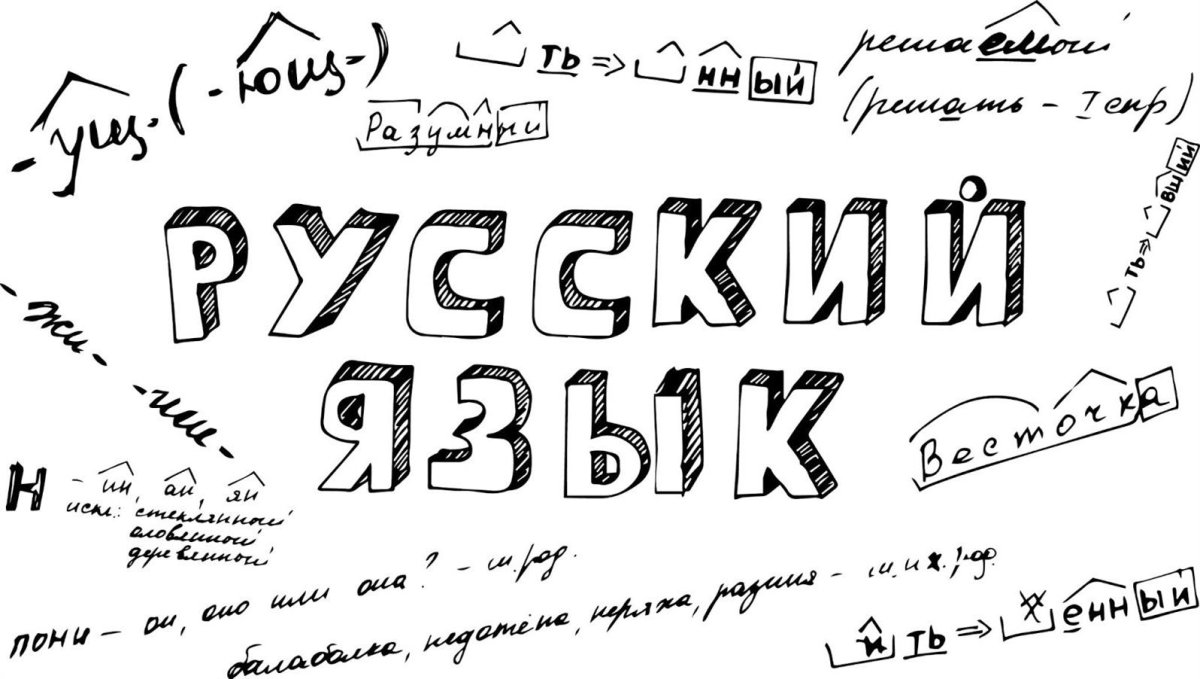 -ущ- (-ющ-)
ть ⇒ нный
решаемый
(решать - I спр)
Разумный
ть ⇒ вший
РУССКИЙ
ЯЗЫК
-жи- -ши-
Весточка
Н - ин, ан, ян
искл: стеклянный
оловянный
деревянный
пони - он, оно или она? - м.род.
балаболка, недотёпа, неряха, разиня - м. и ж. род.
ить ⇒ енный